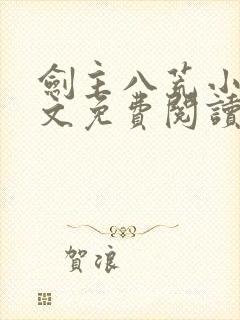 劍主八荒小
文免費閱讀
賀浪